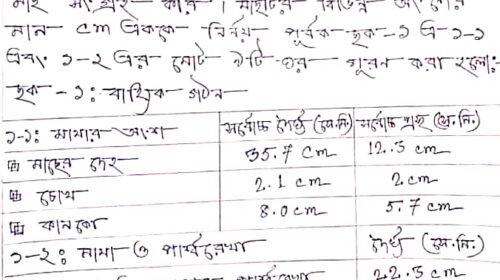 মাছ সংগ্রহ করি। মাছটির বিভিন্ন অংশের
মান cm এককে নির্ণয় পূর্বক ছক-১ এ ১-১
এবং ১-২ এর মোট ৯টি ঘর পূরণ করা হলো:
ছক - ১: বাহ্যিক গঠন
১-১: মাথার অংশ সর্বোচ্চ দৈর্ঘ্য (সে.মি.) সর্বোচ্চ প্রস্থ (সে.মি.)
মাছের দেহ 35.7 cm 12.5 cm
চোখ 2.1 cm 2 cm
কানকো 8.0 cm 5.7 cm
১-২: মাথা ও পার্শ্বরেখা দৈর্ঘ্য (সে.মি.)
পার্শ্বরেখা 22.5 cm